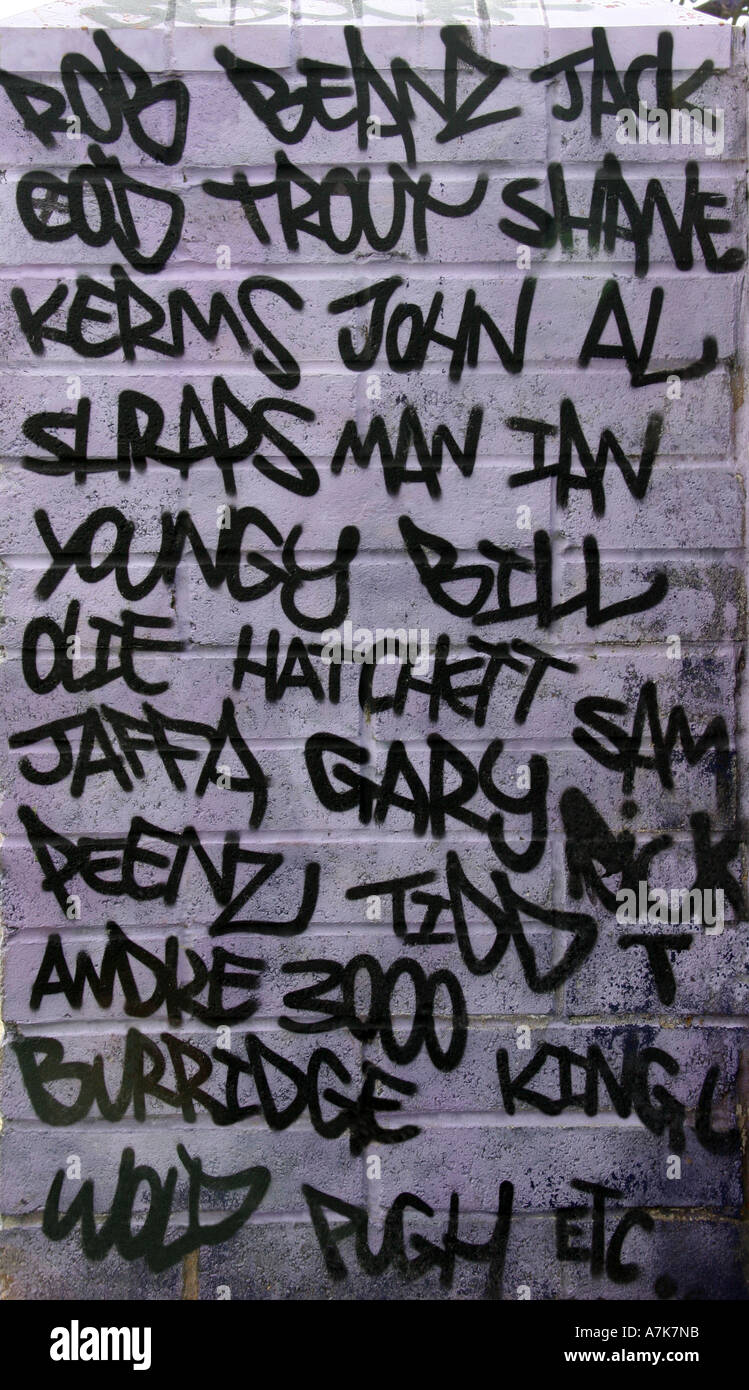 ROB BEANZ JACK
COD TROUT SHANE
KERMS JOHN AL
SCRAPS MAN IAN
YOUNGY BILL
OLIE HATCHETT SAM
JAFFA GARY
PEENZ TIDD RICK
ANDRE 3000 T
BURRIDGE KING
WOLD PUGH ETC.
alamy
Image ID: A7K7NB
www.alamy.com